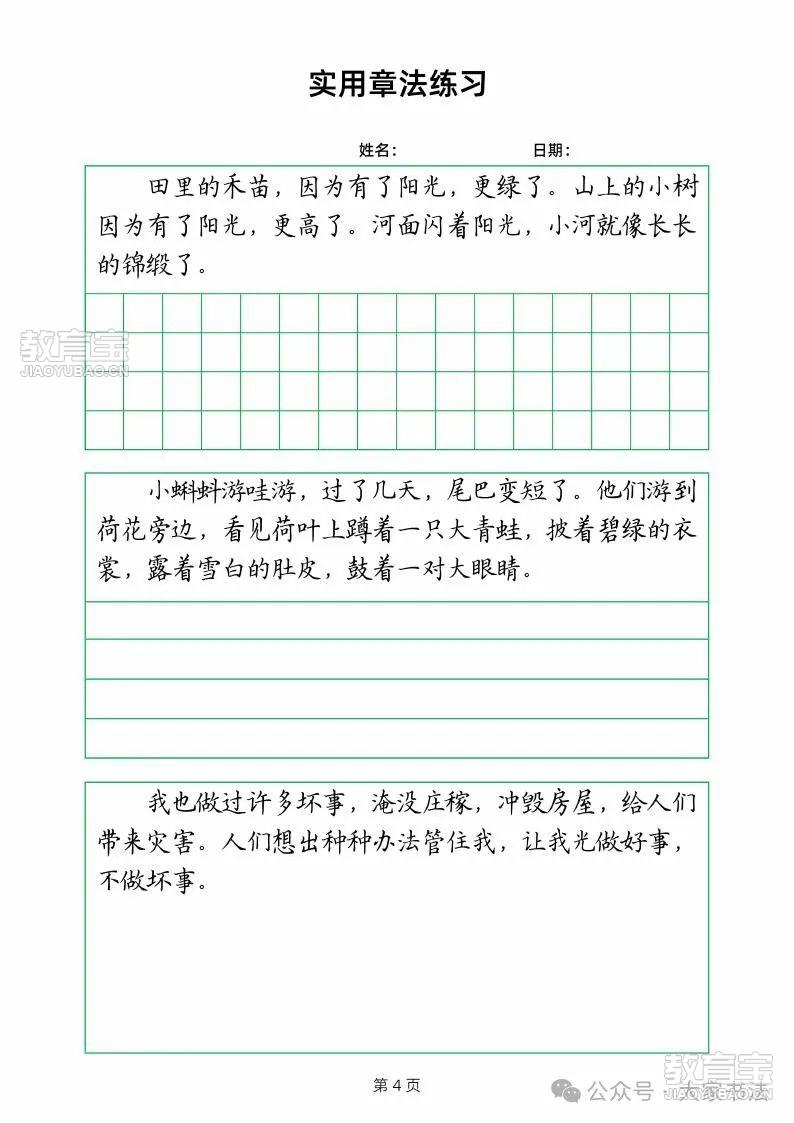 实用章法练习
姓名： 日期：
田里的禾苗，因为有了阳光，更绿了。山上的小树
因为有了阳光，更高了。河面闪着阳光，小河就像长长
的锦缎了。
教育宝
JIAOYUBAO.CN
小蝌蚪游哇游，过了几天，尾巴变短了。他们游到
荷花旁边，看见荷叶上蹲着一只大青蛙，披着碧绿的衣
裳，露着雪白的肚皮，鼓着一对大眼睛。
我也做过许多坏事，淹没庄稼，冲毁房屋，给人们
带来灾害。人们想出种种办法管住我，让我光做好事，
不做坏事。
第 4 页
公众号 · 大家书法
教育宝
JIAOYUBAO.CN